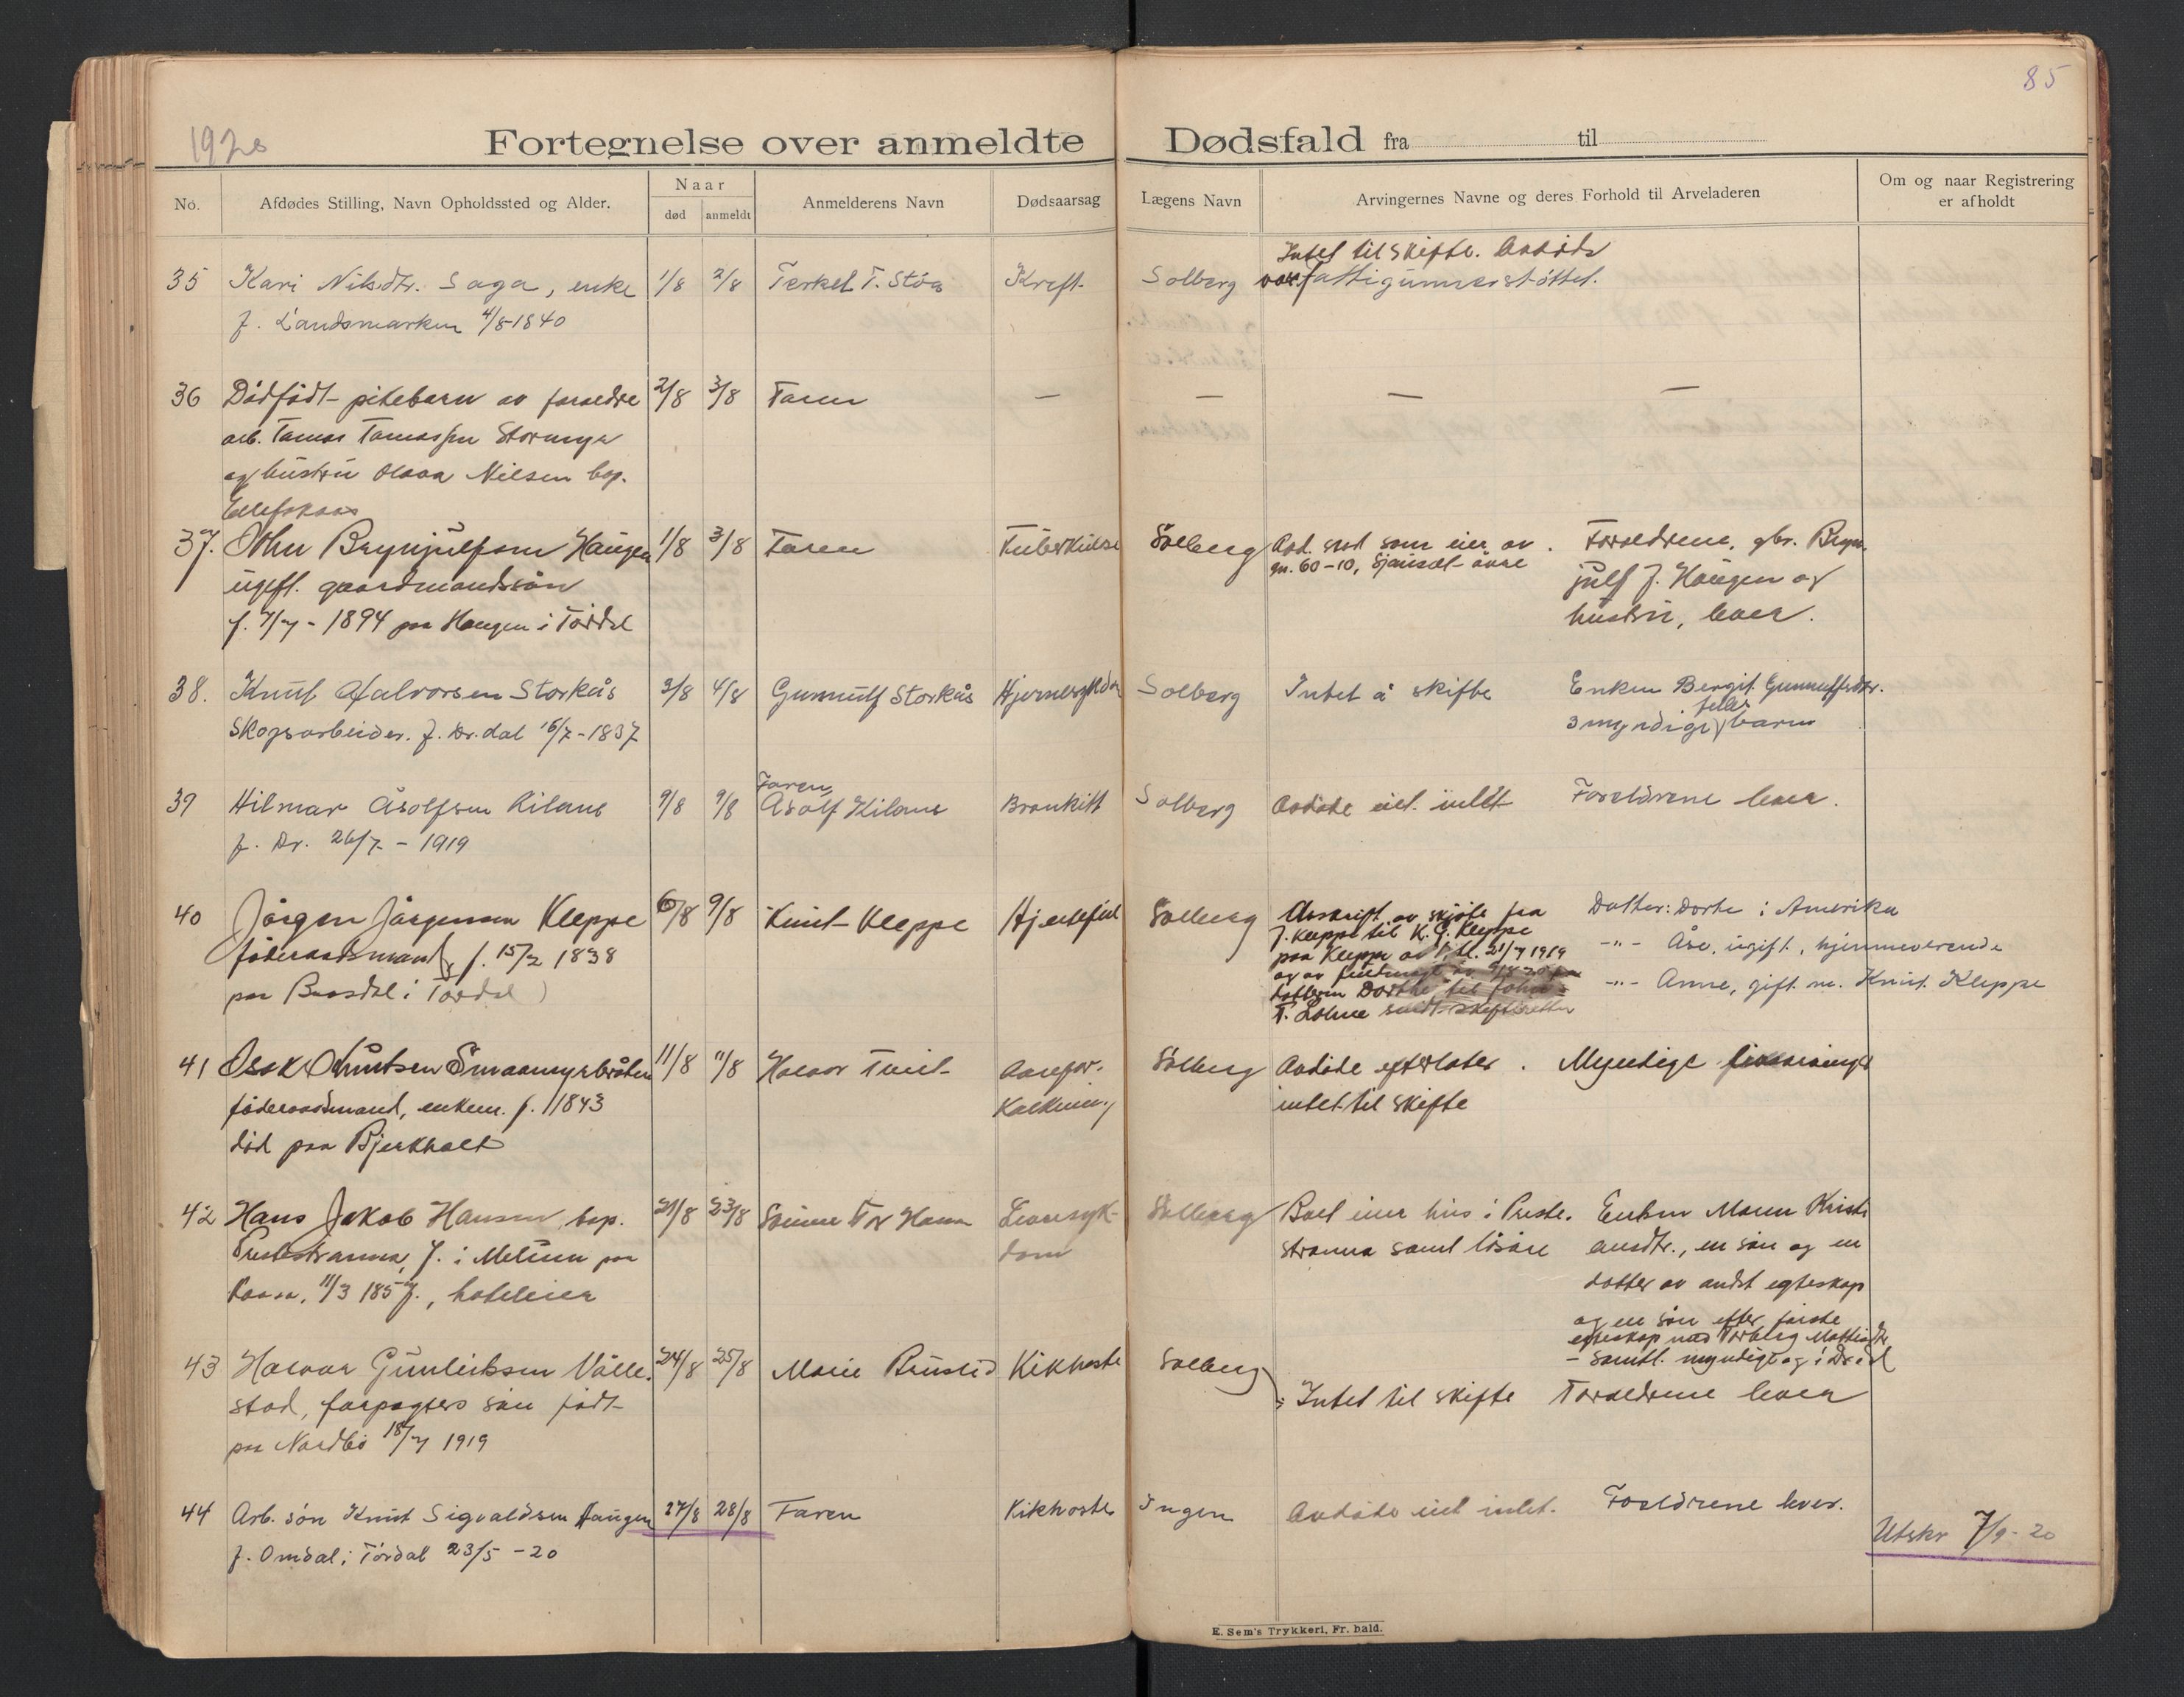 85
1920
Fortegnelse over anmeldte Dødsfald fra til
No.
Afdødes Stilling, Navn Opholdssted og Alder.
Naar
død
anmeldt
Anmelderens Navn
Dødsaarsag
Lægens Navn
Arvingernes Navne og deres Forhold til Arveladeren
Om og naar Registrering
er afholdt
35 Kari Nilsdtr. Saga, enke 1/8 2/8 Terkel T. Støa Kreft Solberg
Intet til skifte. Avdøde
var fattigunnerstøttet.
f. Landsmarken 4/8-1840
36 Dødfødt pikebarn av foreldre 2/8 3/8 Faren — — — —
arb. Tamas Tamassen Stormyr
og hustru Olava Nilsen bop.
37. John Brynjulfsen Haugen 1/8 3/8 Faren Tuberkulose Solberg Avd. stod som eier av
gn. 60-10,
Foreldrene, gbr. Bryn-
julf J. Haugen og
hustru, lever.
ugift. gaardmandssøn
f. 7/7-1894 paa Haugen i Tørdal
38. Knut Halvorsen Storkås 3/8 4/8 Gunnulf Storkås Solberg Intet å skifte Enken Bergit Gunnulfsdtr.
felles
3 myndige barn
Skogsarbeider. f. Dr.dal 16/7-1837
39 Hilmar Åsolfsen Kilane 9/8 9/8 Faren
Åsolf Kilane Bronkitt Solberg Avdøde eiet intet Foreldrene lever.
f. Dr. 26/7-1919
40 Jørgen Jørgensen Kleppe 6/8 9/8 Knut Kleppe Hjertefeil Solberg
føderaadsmand, f. 15/2 1838
paa Bråsdal i Tørdal
Avskrift av skjøte fra
J. Kleppe til K. G. Kleppe
paa Kleppe av 21/7 1919
og av
datteren Dorthe til John
T. Lohne sendt skifteretten
Datter: Dorte i Amerika
-"- Åse, ugift, hjemmeværende
-"- Anne, gift m. Knut Kleppe
41 Isak Knutsen Smaamyrbråten 11/8 11/8 Halvor Tveit Aarefor-
kalkning Solberg Avdøde efterlater
intet til skifte
Myndige livsarvinger
føderaadsmand, enkem. f. 1843
død paa Bjerkholt
42 Hans Jakob Hansen, bop. 21/8 23/8 Sønnen Tor Hansen Leversyk-
dom Solberg
Prestestranna, f. i Melum paa
11/3 1857., hoteleier
Boet eier hus i Preste-
stranna samt løsøre
Enken Maren Kristi
ansdtr., en søn og en
datter av andet egteskap
og en søn efter første
egteskap med Torberg Mathisdtr
- samtl. myndige og i Dr.dal
43 Halvor Gunleiksen Valle- 24/8 25/8 Marie Brusted Kikhoste Solberg
Intet til skifte Foreldrene lever
stad, forpagters søn født
paa Nordbø 18/7 1919
44 Arb. søn Knut Sigvaldsen Haugen 27/8 28/8 Faren Kikhoste Ingen Avdøde eiet intet. Foreldrene lever.
f. Omdal i Tørdal 23/5-20
Utskr 7/9-20
E. Sem's Trykkeri, Fr.hald.